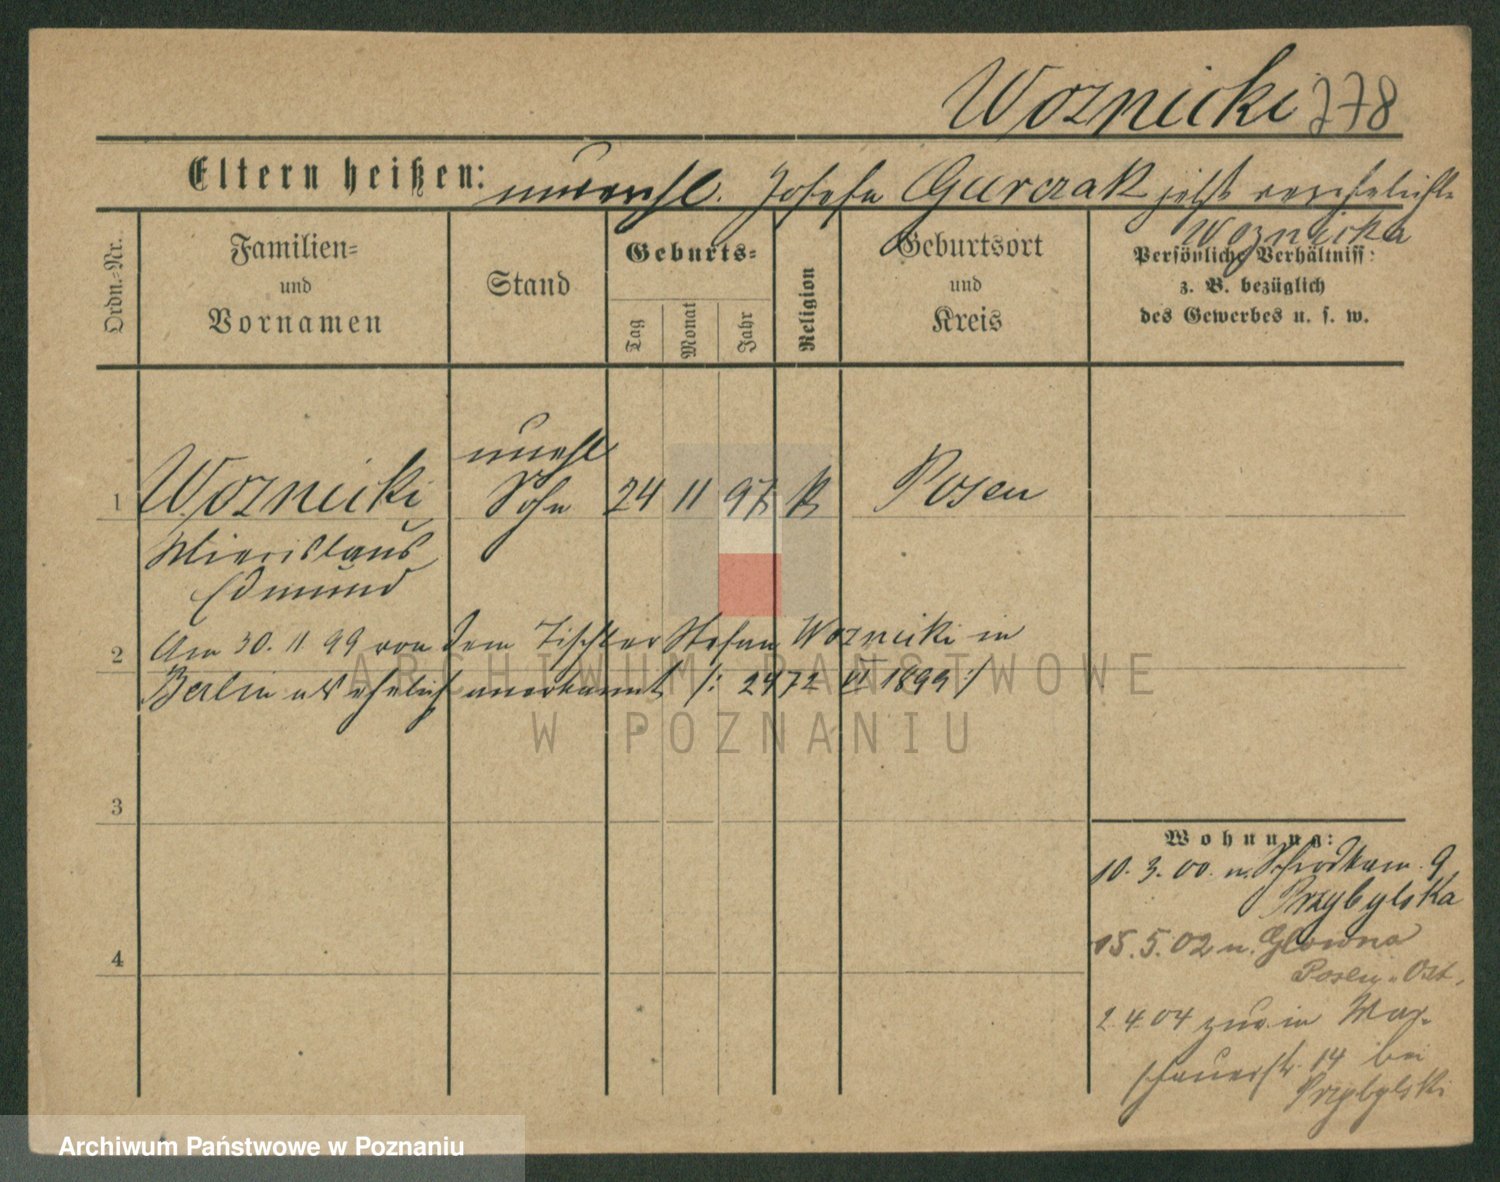 Woznicki 778
Eltern heißen: unverehl. Josefa Gurczak jetzt verehelichte
Woznicka
Ordn.-Nr.
Familien-
und
Vornamen
Stand
Geburts-
Tag
Monat
Jahr
Religion
Geburtsort
und
Kreis
Persönliche Verhältniss:
z. B. bezüglich
des Gewerbes u. s. w.
unehl
1 Woznicki Sohn 24 11 97 k Posen
Miecislaus
Edmund
2 Am 30. 11 99 von dem Tischler Stefan Woznicki in
Berlin als ehelich anerkannt /: 2972 VI 1899 :/
3
Wohnung:
10. 3. 00. n. Schrodkam. 9
Przybylska
4
15. 5. 02 n. Glowno
Posen-Ost.
2 4 04 zur. in War-
schauerstr. 14 bei
Przybylski
ARCHIWUM PAŃSTWOWE
W POZNANIU
Archiwum Państwowe w Poznaniu